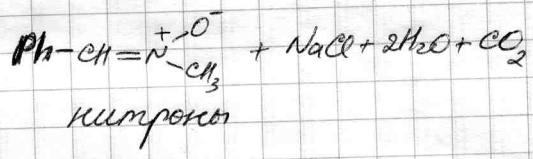 Ph-CH=N⁺(O⁻)(CH₃) + NaCl + 2H₂O + CO₂
нитроны